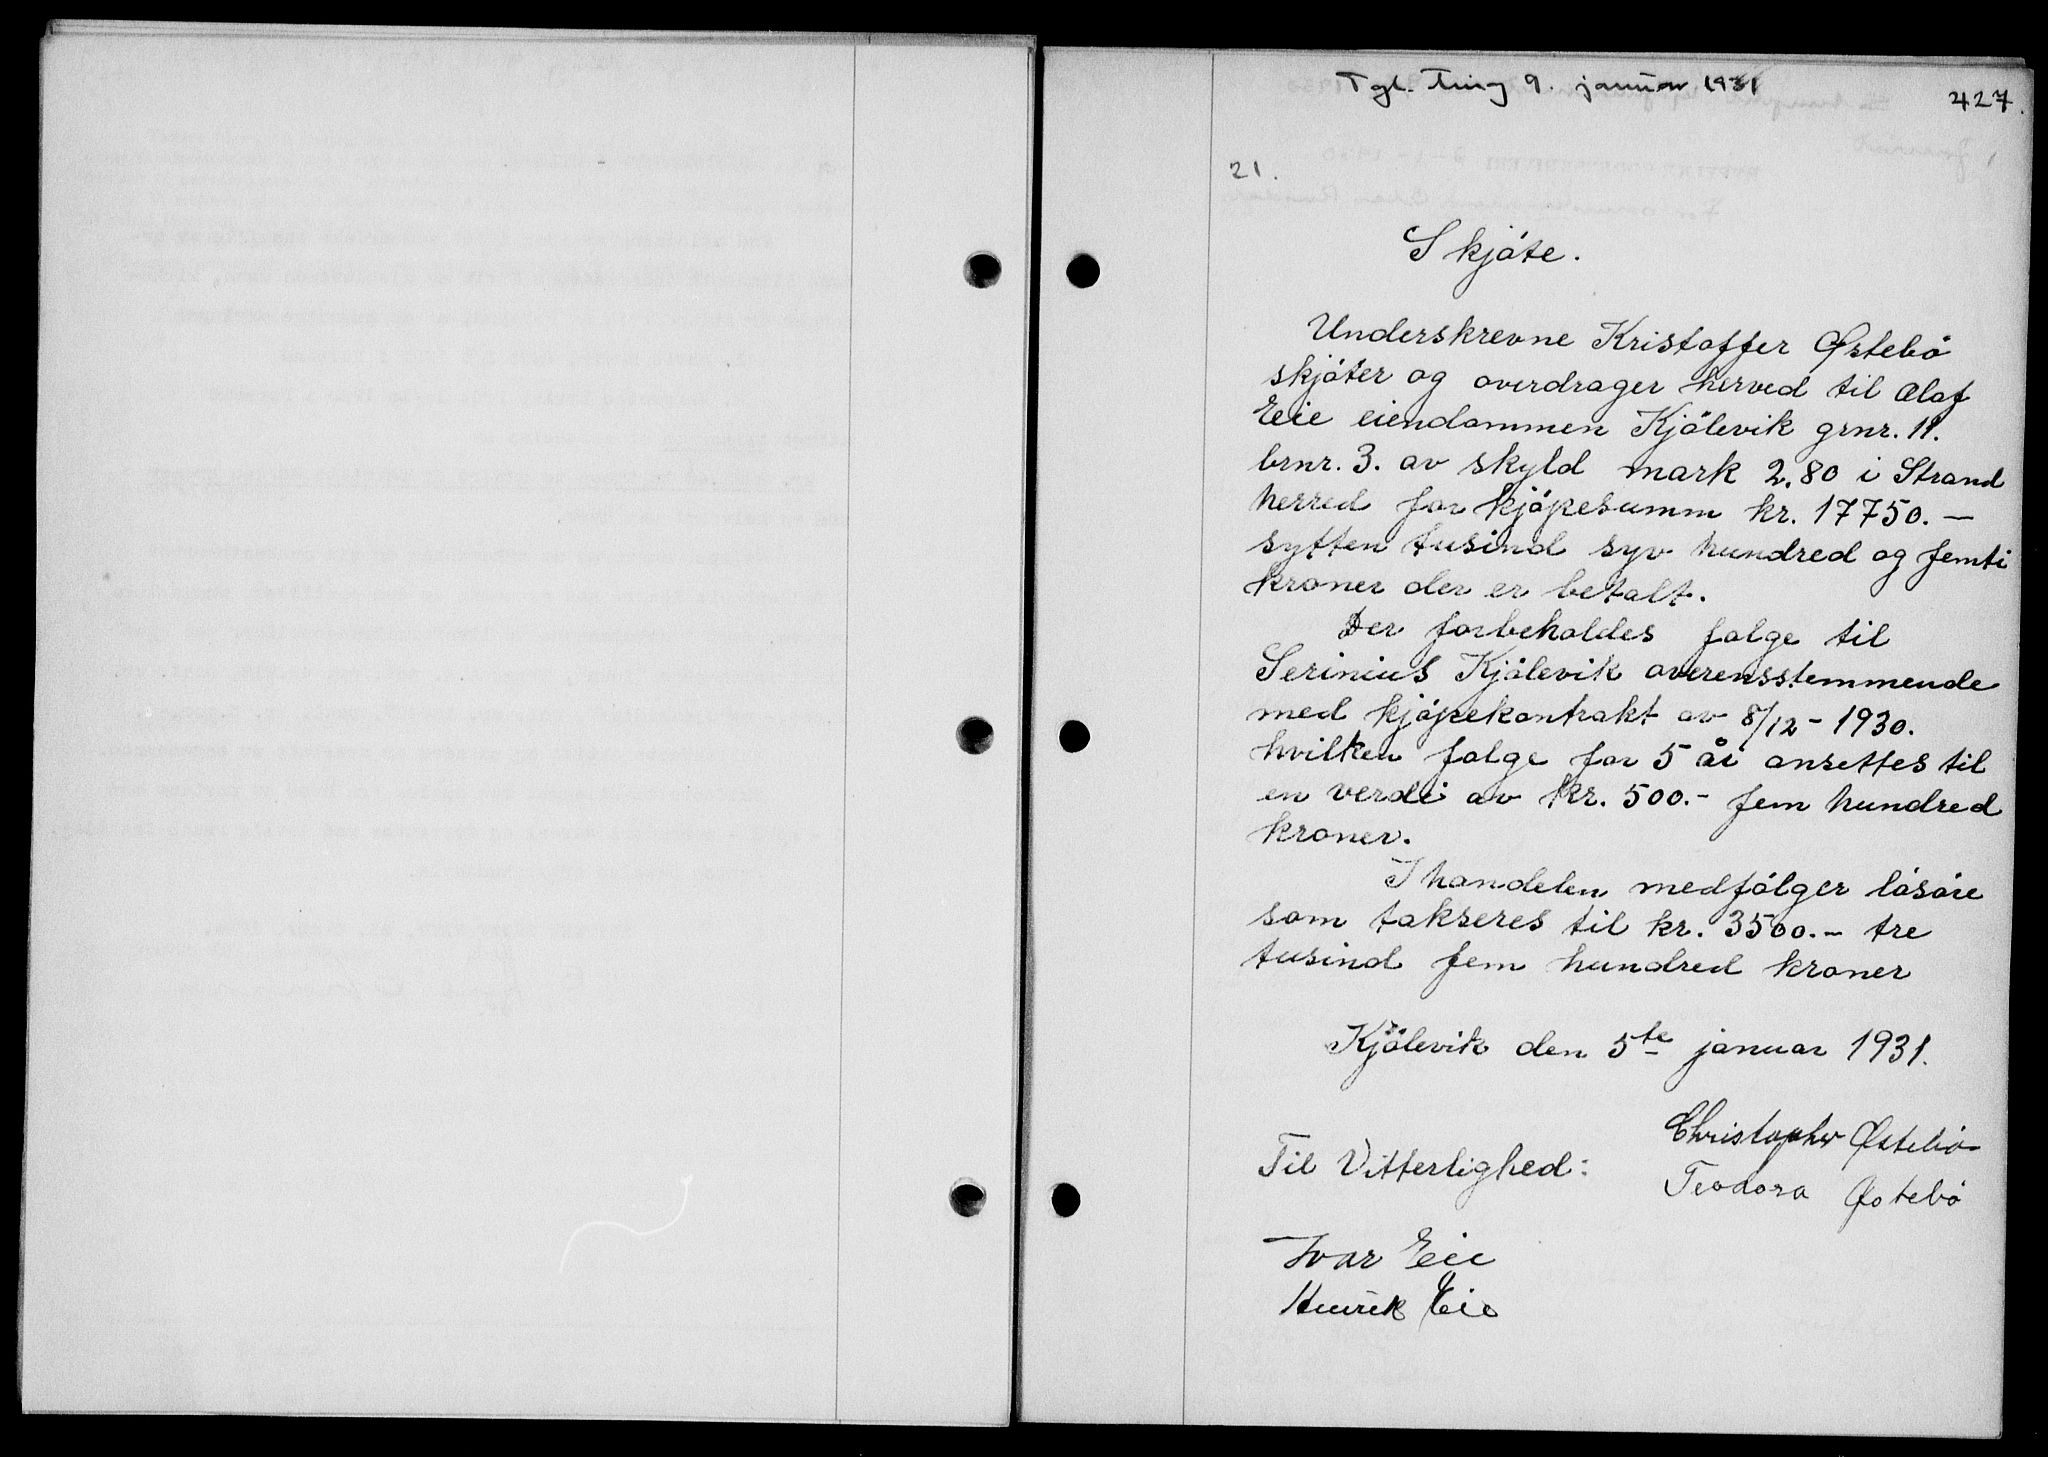 Tgl. Ting 9. januar 1931
427.
21.
Skjöte.
Underskrevne Kristoffer Østebö
skjöter og overdrager herved til Olaf
Eie eiendommen Kjölevik grnr. 11.
brnr. 3. av skyld mark 2,80 i Strand
herred for kjöpesumm kr. 17750. —
sytten tusind syv hundred og femti
kroner der er betalt.
Der forbeholdes folge til
Serinius Kjölevik overensstemmende
med kjöpekontrakt av 8/12 - 1930.
hvilken folge for 5 år ansettes til
en verdi av kr. 500.- fem hundred
kroner.
I handelen medfölger lösöre
som takseres til kr. 3500.- tre
tusind fem hundred kroner
Kjölevik den 5te januar 1931.
Christopher Østebö
Til Vitterlighed:
Teodora Østebö
Ivar Eie
Henrik Eie